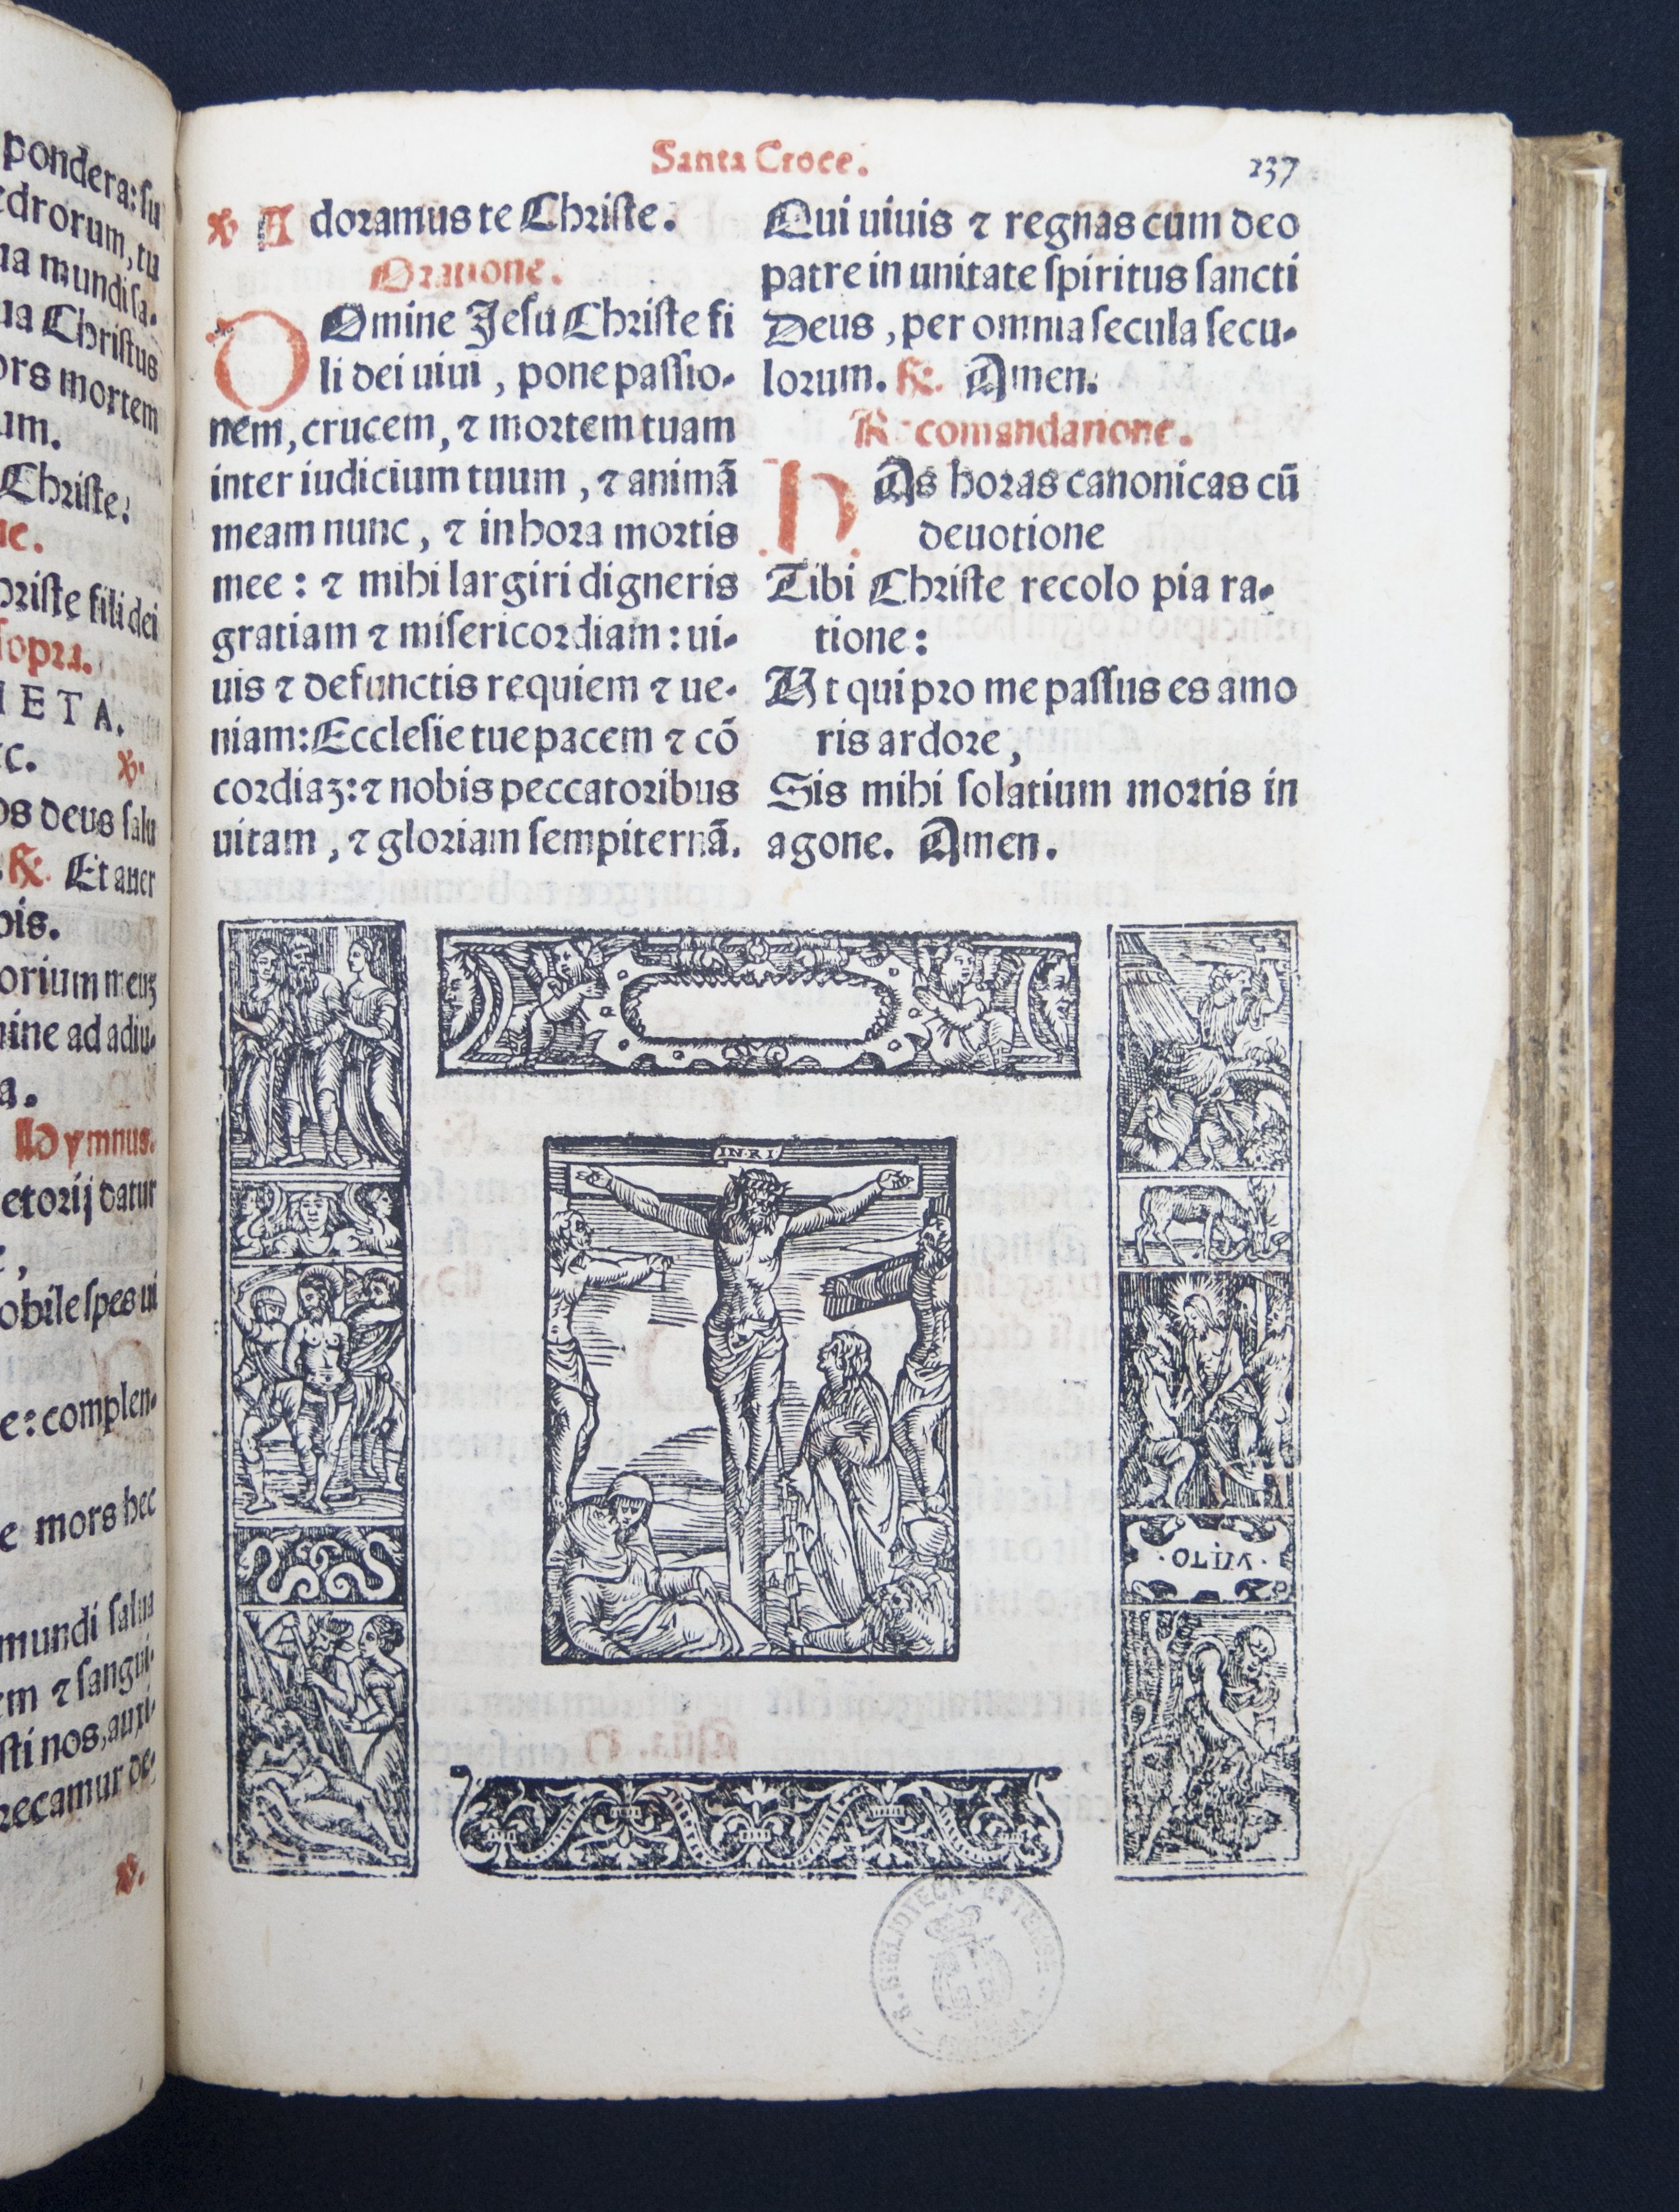 pondera: su
edrorum, tu
ua mundi sa-
ua Christus
ors mortem
um.
Christe:
ne.
Christe fili dei
sopra.
IETA.
c. ℣.
os deus salu
℟. Et auer
bis.
orium meuȝ
mine ad adiu-
a.
Hymnus.
etorij datur
e,
obile spes ui
e: complen-
e mors hec
mundi salua
em ⁊ sangui-
sti nos, auxi-
recamur de-
℣.
Santa Croce. 237
℣ Adoramus te Christe.
Oratione.
DOmine Jesu Christe fi
li dei uiui, pone passio-
nem, crucem, ⁊ mortem tuam
inter iudicium tuum, ⁊ animã
meam nunc, ⁊ in hora mortis
mee: ⁊ mihi largiri digneris
gratiam ⁊ misericordiam: ui-
uis ⁊ defunctis requiem ⁊ ue-
niam: Ecclesie tue pacem ⁊ cõ
cordiaȝ: ⁊ nobis peccatoribus
uitam, ⁊ gloriam sempiternã.
Qui uiuis ⁊ regnas cum deo
patre in unitate spiritus sancti
Deus, per omnia secula secu-
lorum. ℟. Amen.
Recomandatione.
HAs horas canonicas cũ
deuotione
Tibi Christe recolo pia ra-
tione:
Ut qui pro me passus es amo
ris ardore,
Sis mihi solatium mortis in
agone. Amen.
INRI
·VIILO·
R. BIBLIOTECA ESTENSE